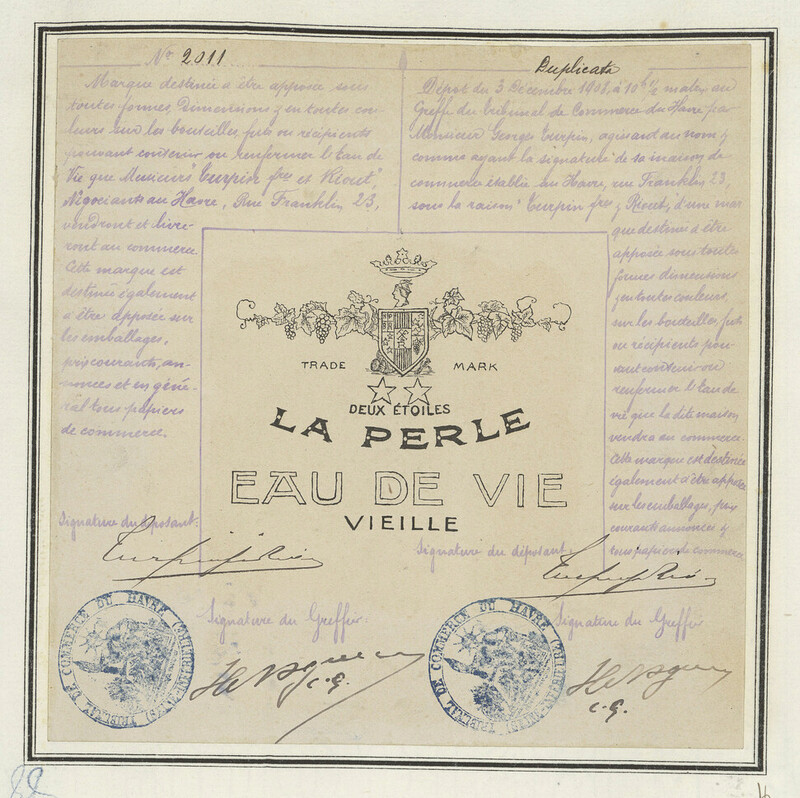 Nº 2011
Marque destinée à être apposée sous
toutes formes, Dimensions & en toutes cou-
leurs sur les bouteilles, futs ou récipients
pouvant contenir ou renfermer l'eau de
Vie que Messieurs "Turpin fres et Rioult",
Négociants au Havre, Rue Franklin 23,
vendront et livre-
ront au commerce
Cette marque est
destinée également
à être apposée sur
les emballages,
prix courants, an-
nonces et en géné-
ral tous papiers
de commerce.
Signature du déposant:
Signature du Greffier
C.G.
TRIBUNAL DE COMMERCE DU HAVRE
Duplicata
Dépôt du 3 Décembre 1908, à 10h 1/2 matin au
Greffe du tribunal de Commerce du Havre par
Monsieur Georges Turpin, agissant au nom &
comme ayant la signature de sa maison de
commerce établie au Havre, rue Franklin 23,
sous la raison "Turpin fres & Rioult, d'une mar
que destinée à être
apposée sous toutes
formes dimensions
& en toutes couleurs
sur les bouteilles, futs
ou récipients pou-
vant contenir ou
renfermer l'eau de
vie que la dite maison
vendra au commerce.
Cette marque est destinée
également à être apposée
sur les emballages, prix
courants annonces &
tous papiers de commerce
Signature du déposant:
Signature du Greffier
C.G.
TRIBUNAL DE COMMERCE DU HAVRE
TRADE MARK
DEUX ÉTOILES
LA PERLE
EAU DE VIE
VIEILLE